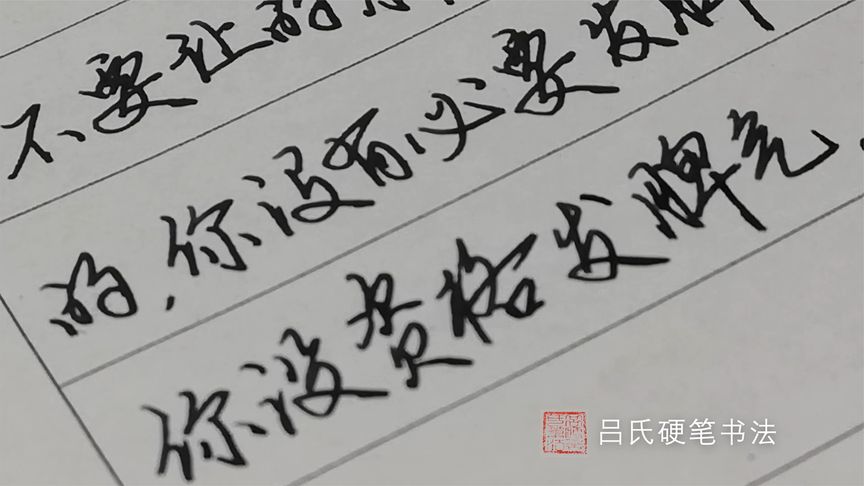 不要让的
的,你没有必要发脾
你没资格发脾气.
吕氏硬笔书法